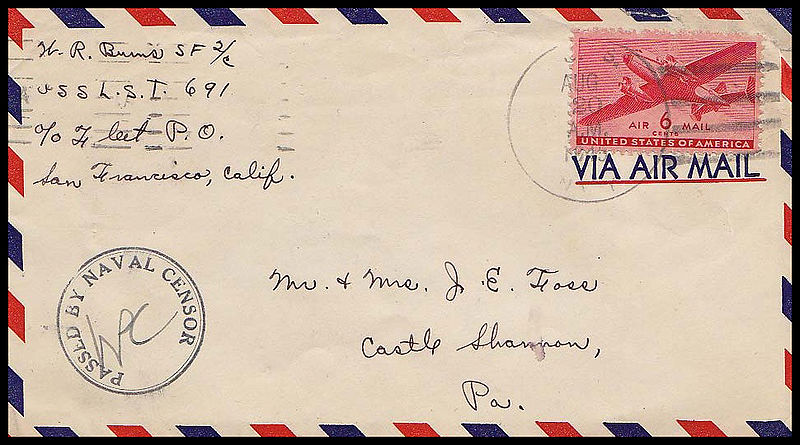 W. R. Burns SF 2/c
USS L.S.T. 691
c/o Fleet P.O.
San Francisco, Calif.
AUG
AIR 6 MAIL
CENTS
UNITED STATES OF AMERICA
VIA AIR MAIL
PASSED BY NAVAL CENSOR
Mr. & Mrs. J. E. Foss
Castle Shannon,
Pa.